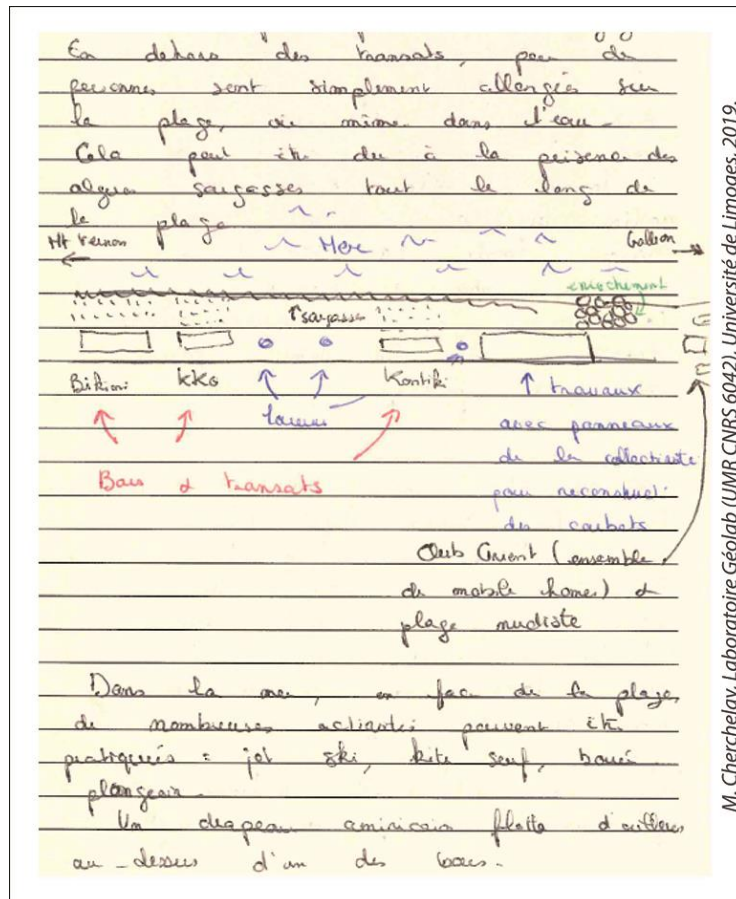 En dehors des transats, peu de
personnes sont simplement allongées sur
la plage, ou même dans l'eau.
Cela peut être du à la présence des
algues sargasses tout le long de
la plage
Mt Vernon
Mer
Galleon
enrochement
sargasse
Bikini
KKO
Kontiki
loueurs
Bars & transats
travaux
avec panneaux
de la collectivité
pour reconstruct°
des carbets
Club Orient (ensemble
de mobile homes) &
plage nudiste
Dans la mer, en face de la plage,
de nombreuses activités peuvent être
pratiquées : jet ski, kite surf, bouée
plongeoir.
Un drapeau américain flotte d'ailleurs
au-dessus d'un des bars.
M. Cherchelay, Laboratoire Géolab (UMR CNRS 6042), Université de Limoges, 2019.